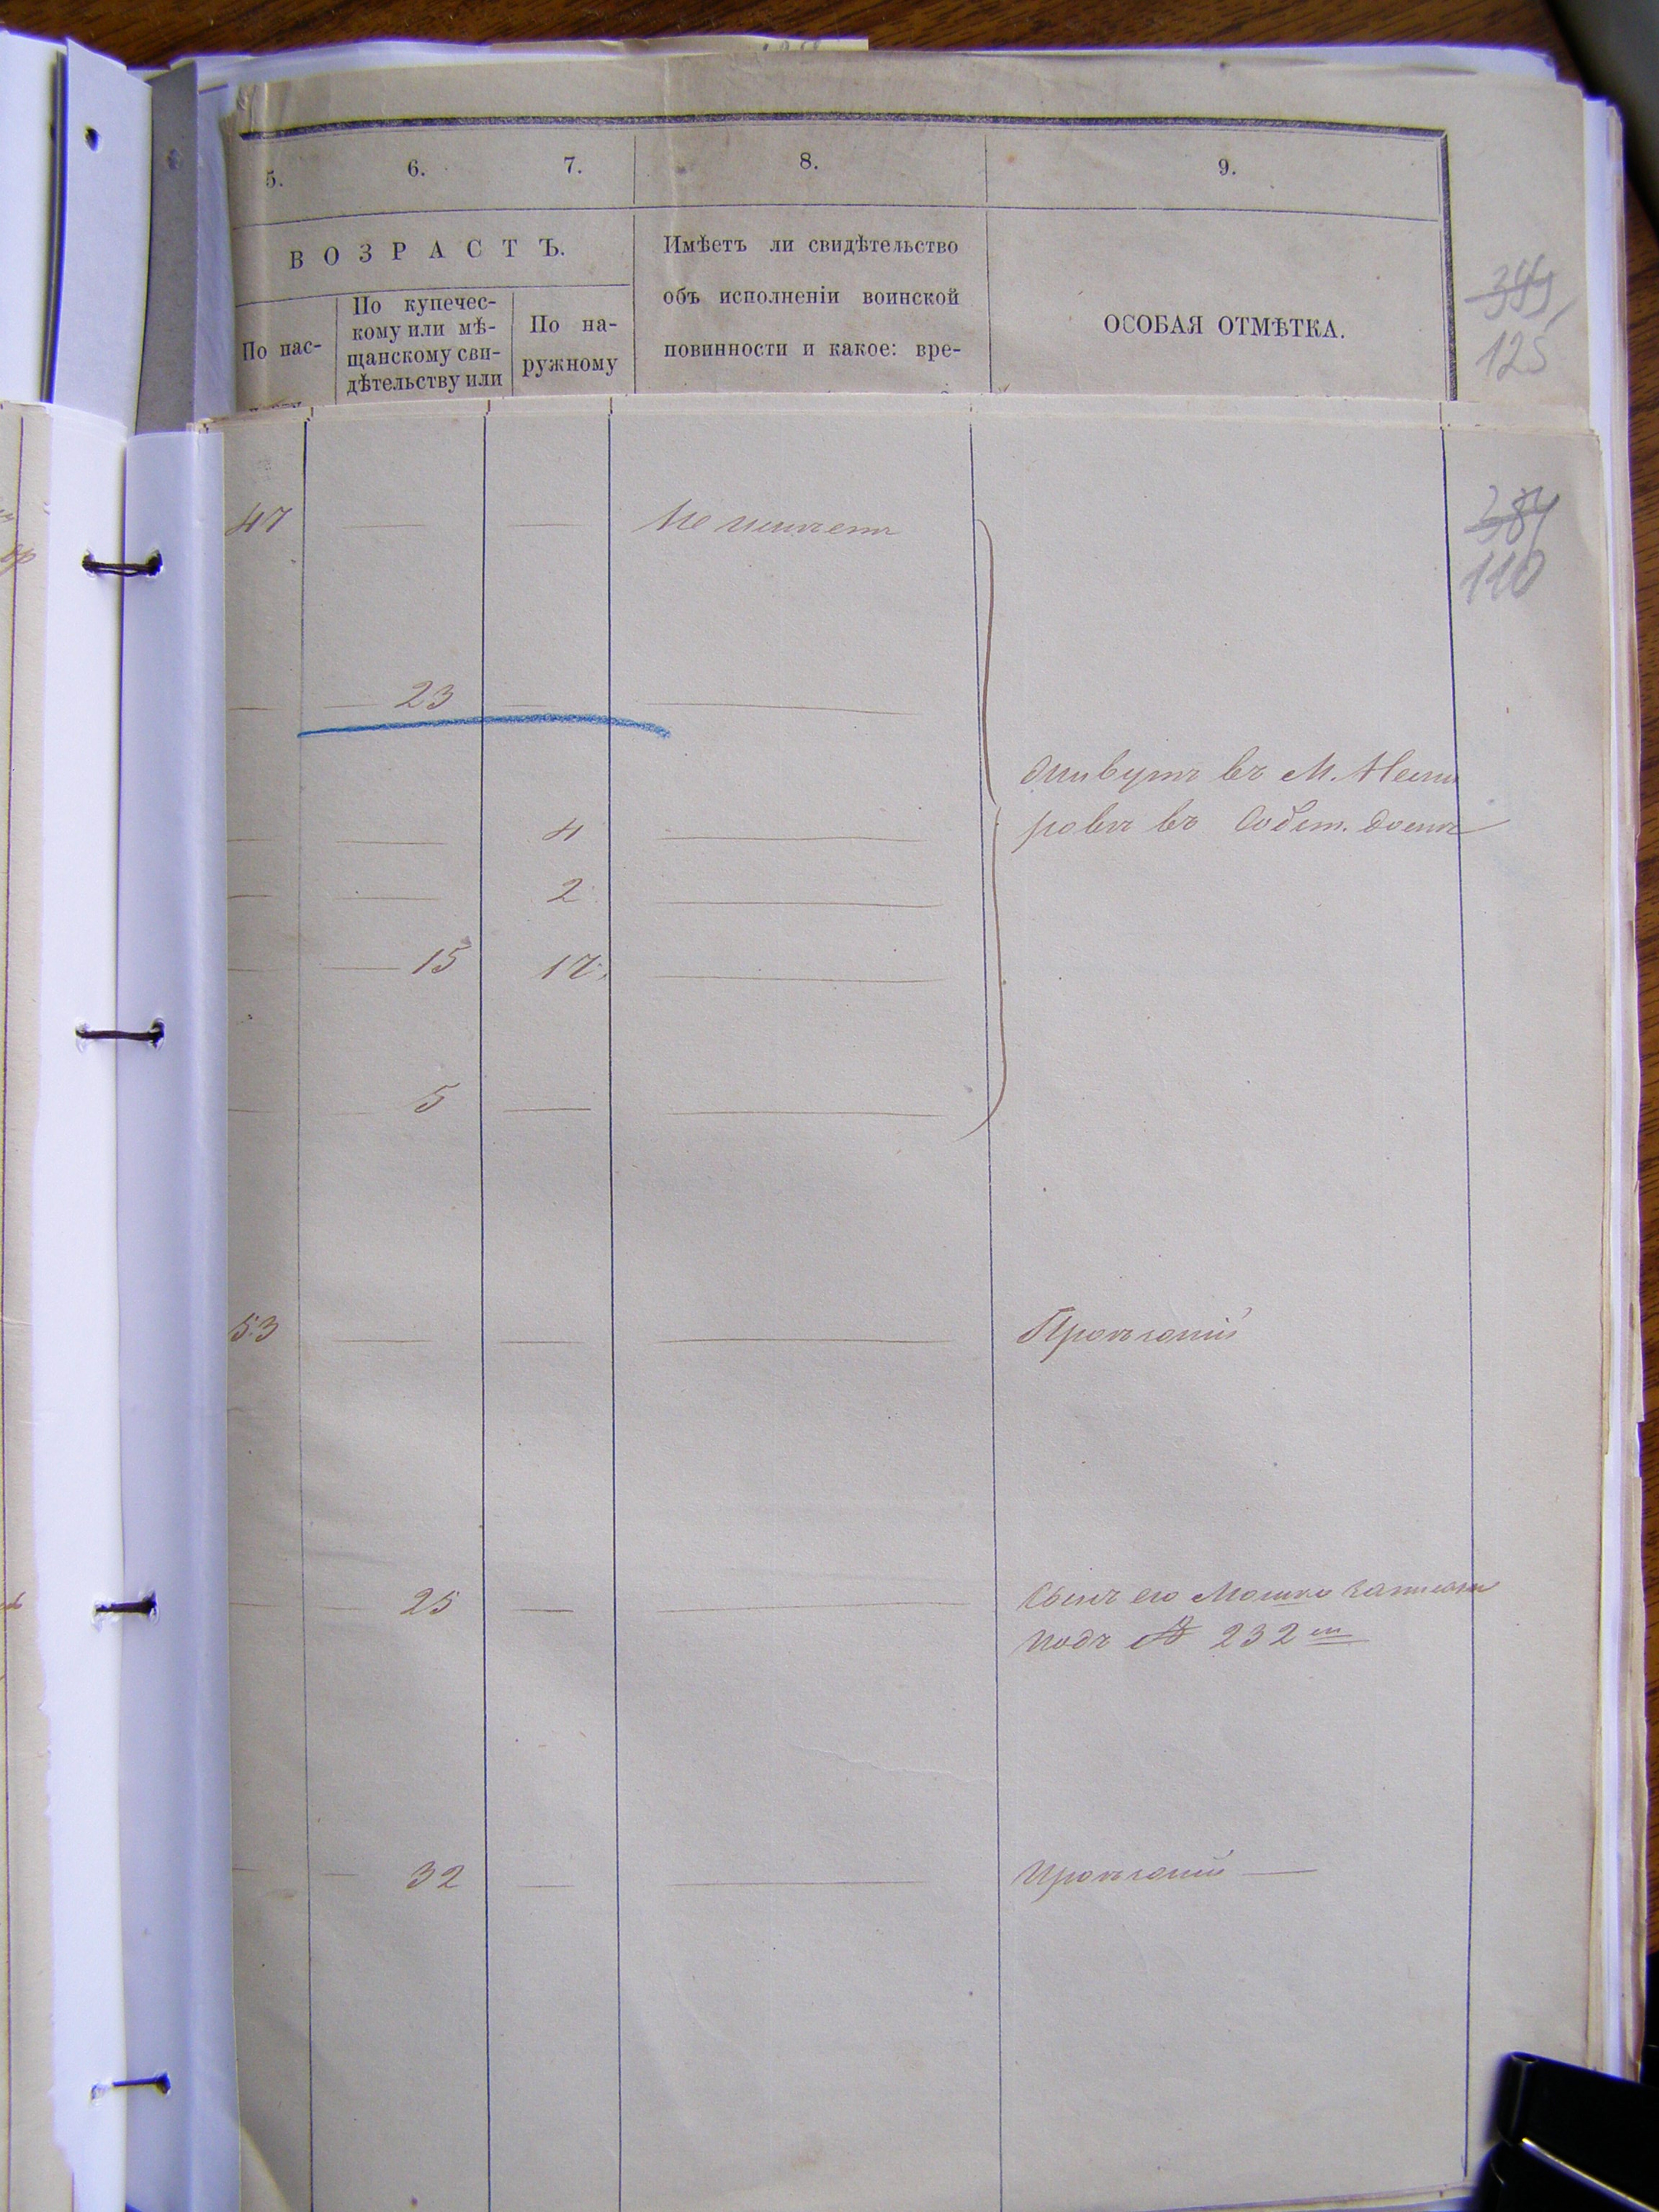 5. 6. 7. 8. 9.
ВОЗРАСТЪ.
По пас-
По купечес-
кому или мѣ-
щанскому сви-
дѣтельству или
По на-
ружному
Имѣетъ ли свидѣтельство
объ исполненіи воинской
повинности и какое: вре-
ОСОБАЯ ОТМѢТКА.
125
47 — — Не имѣетъ
384
110
— — 23 — —
живутъ въ М. Неми
ровѣ въ Собст. домѣ
— — 4 —
— — 2 —
— — 15 17 —
— — 5 — —
53 — — —
— — 25 — — Сынъ его Мошко записанъ
подъ № 232 м
— — 32 — —